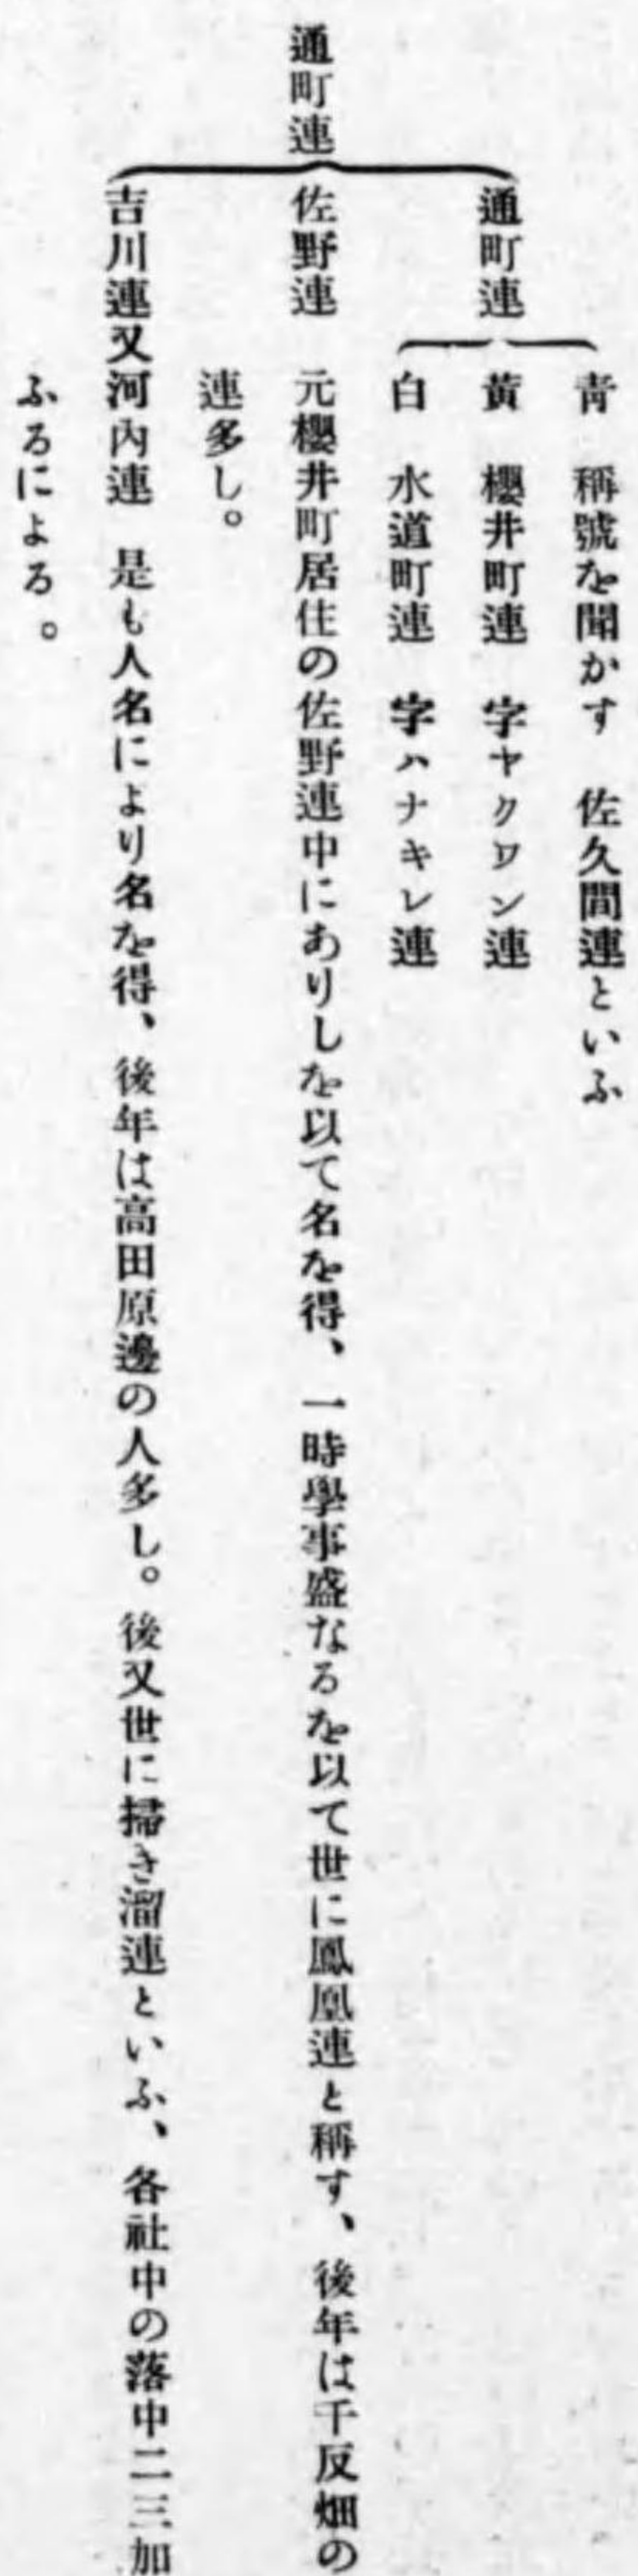 通町連
通町連
青　稱號を聞かす　佐久間連といふ
黃　櫻井町連　字ヤクワン連
白　水道町連　字ハナキレ連
佐野連　元櫻井町居住の佐野連中にありしを以て名を得、一時學事盛なるを以て世に鳳凰連と稱す、後年は千反畑の
連多し。
吉川連又河內連　是も人名により名を得、後年は高田原邊の人多し。後又世に掃き溜連といふ、各社中の落中二三加
ふるによる。